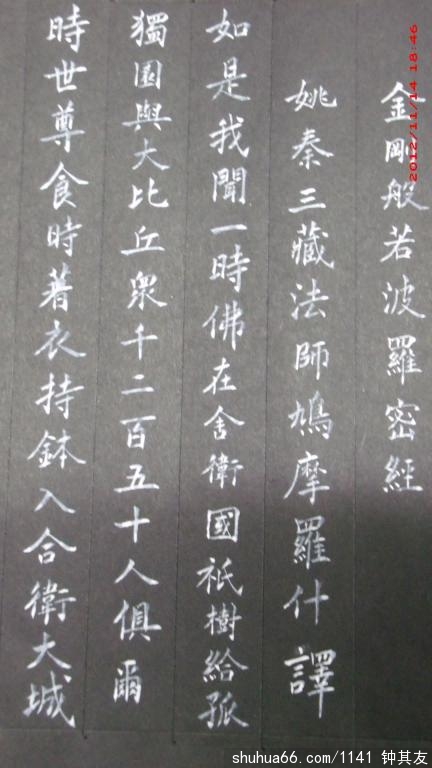 金剛般若波羅密經
姚秦三藏法師鳩摩羅什譯
如是我聞一時佛在舍衛國祇樹給孤
獨園與大比丘衆千二百五十人俱爾
時世尊食時著衣持鉢入合衛大城
2012/11/14 18:46
shuhua66.com/1141 钟其友